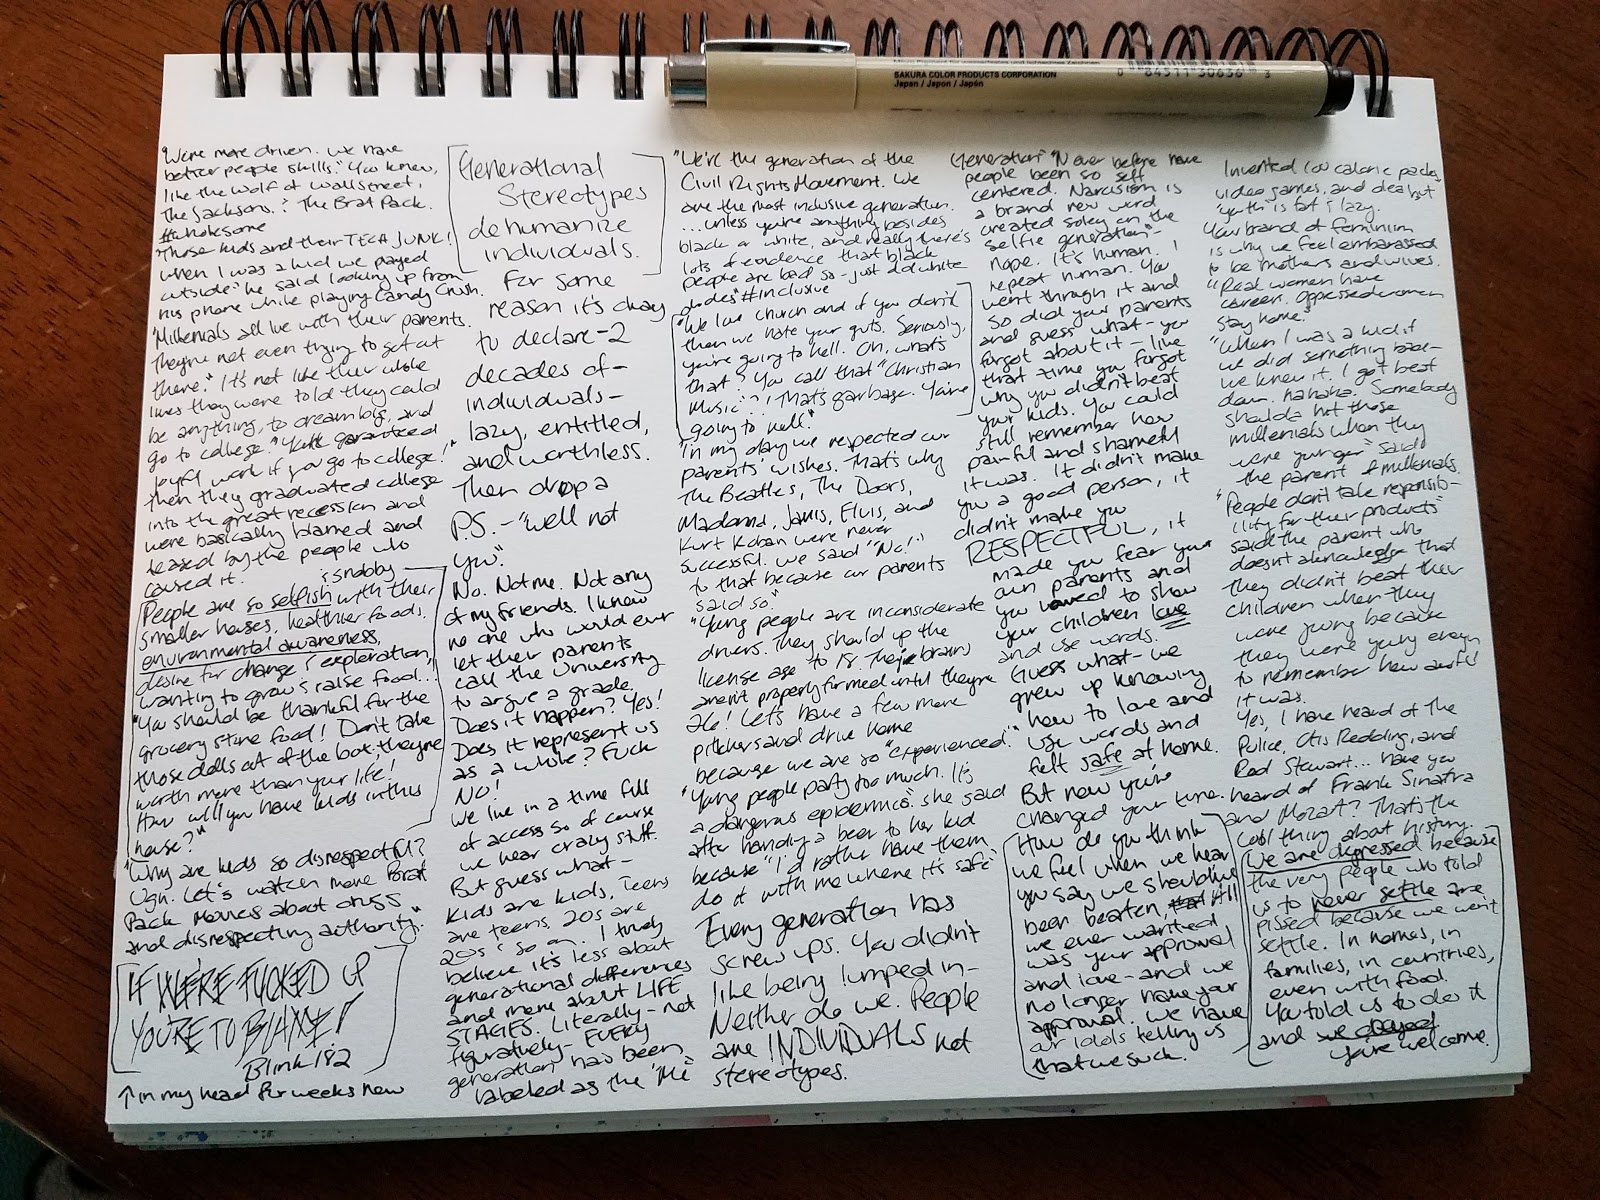 SAKURA COLOR PRODUCTS CORPORATION
Japan / Japon / Japón
0 84511 30636 3
"We're more driven. We have
better people skills." You know,
like the Wolf of Wallstreet,
The Jacksons, & The Brat Pack.
#wholesome
"Those kids and their TECH JUNK!
When I was a kid we played
outside" he said looking up from
his phone while playing Candy Crush.
"Millenials all live with their parents.
They're not even trying to get out
there." It's not like their whole
lives they were told they could
be anything, to dream big, and
go to college. "You're garanteed
joyful work if you go to college!"
Then they graduated college
into the great recession and
were basically blamed and
teased by the people who
caused it.
& snobby
People are so selfish with their
smaller houses, healthier foods,
environmental awareness,
desire for change & exploration,
wanting to grow & raise food...
"You should be thankful for the
grocery store food! Don't take
those dolls out of the box, they're
worth more than your life!
How will you have kids in this
house?"
"Why are kids so disrespectful?
Ugh. Let's watch more Brat
Pack movies about drugs
and disrespecting authority."
IF WE'RE FUCKED UP
YOU'RE TO BLAME!
Blink 182
↑ in my head for weeks now
Generational
Stereotypes
dehumanize
individuals.
For some
reason it's okay
to declare - 2
decades of -
individuals -
lazy, entitled,
and worthless.
Then drop a
P.S. - "well not
you".
No. Not me. Not any
of my friends. I know
no one who would ever
let their parents
call the University
to argue a grade.
Does it happen? Yes!
Does it represent us
as a whole? Fuck
No!
We live in a time full
of access so of course
we hear crazy stuff.
But guess what -
kids are kids, teens
are teens, 20s are
20s & so on. I truly
believe it's less about
generational differences
and more about LIFE
STAGES. Literally - not
figuratively - EVERY
generation has been
labeled as the "Me"
"We're the generation of the
Civil Rights Movement. We
are the most inclusive generation.
...unless you're anything besides
black or white, and really there's
lots of evidence that black
people are bad so - just old white
dudes" #inclusive
"We love church and if you don't
then we hate your guts. Seriously,
you're going to hell. Oh, what's
that? You call that "Christian
Music"?! That's garbage. You're
going to hell."
"In my day we respected our
parents' wishes. That's why
The Beatles, The Doors,
Madonna, Janis, Elvis, and
Kurt Kobain were never
successful. We said "No!"
to that because our parents
said so."
"Young people are inconsiderate
drivers. They should up the
license age to 18. Their brains
aren't properly formed until they're
26! Let's have a few more
pitchers and drive home
because we are so "experienced"."
"Young people party too much. It's
a dangerous epidemic" she said
after handing a beer to her kid
because "I'd rather have them
do it with me where it's safe"
Every generation has
screw ups. You didn't
like being lumped in -
Neither do we. People
are INDIVIDUALS not
stereotypes.
Generation. "Never before have
people been so self
centered. Narcisism is
a brand new word
created soley on the
selfie generation" -
nope. It's human. I
repeat human. You
went through it and
so did your parents
and guess what - you
forgot about it - like
that time you forgot
why you didn't beat
your kids. You could
still remember how
painful and shameful
it was. It didn't make
you a good person, it
didn't make you
RESPECTFUL, it
made you fear your
own parents and
you vowed to show
your children love
and use words.
Guess what - we
grew up knowing
how to love and
use words and
felt safe at home.
But now you've
changed your tune.
How do you think
we feel when we hear
you say we should've
been beaten, All
we ever wanted
was your approval
and love - and we
no longer have your
approval. We have
our idols telling us
that we suck.
Invented low calorie packs,
video games, and dea but
"youth is fat & lazy.
Your brand of feminism
is why we feel embarassed
to be mothers and wives.
"Real women have
careers. Oppressed women
stay home."
"When I was a kid if
we did something bad -
we knew it. I got beat
down. hahaha. Somebody
shoulda hit those
millenials when they
were younger" said
the parent of millenials.
"People don't take responsib-
ility for their products"
said the parent who
doesn't aknowledge that
they didn't beat their
children when they
were young because
they were young enough
to remember how awful
it was.
Yes, I have heard of The
Police, Otis Redding, and
Rod Stewart... have you
heard of Frank Sinatra
and Mozart? That's the
cool thing about history.
We are depressed because
the very people who told
us to never settle are
pissed because we won't
settle. In homes, in
families, in countries,
even with food.
You told us to do it
and we obeyed
you're welcome.